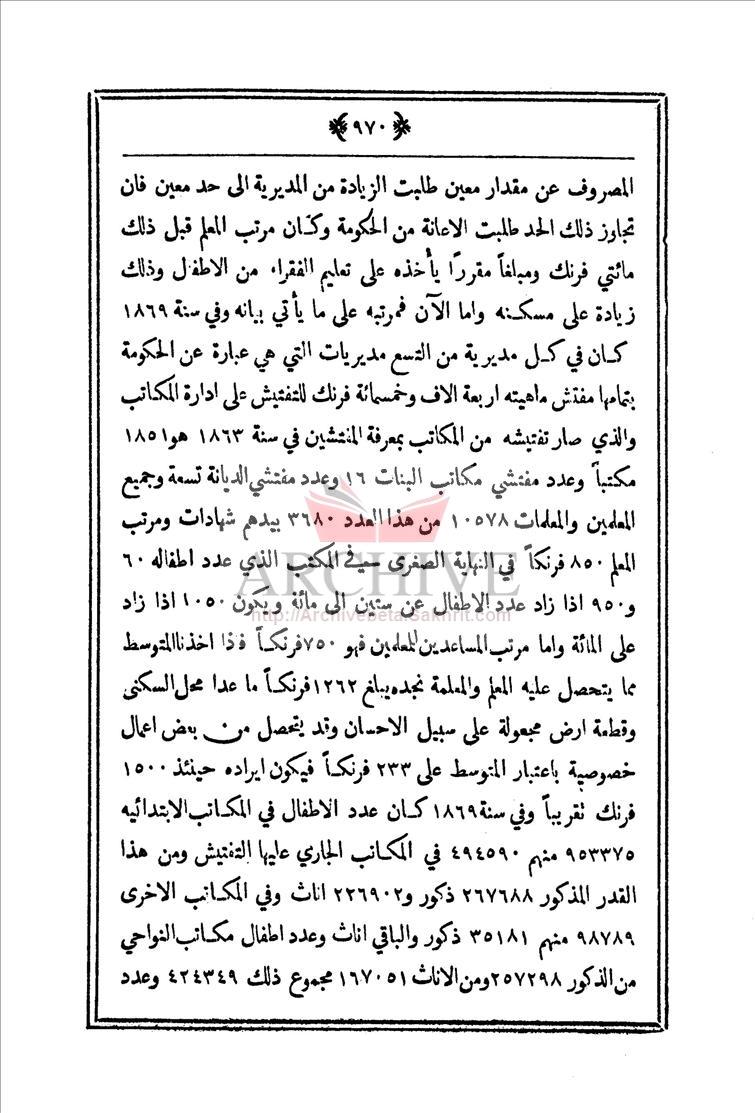 ٩٧٠
المصروف عن مقدار معين طلبت الزيادة من المديرية الى حد معين فان
تجاوز ذلك الحد طلبت الاعانة من الحكومة وكان مرتب المعلم قبل ذلك
مائتي فرنك ومبلغاً مقررًا يأخذه على تعليم الفقراء من الاطفال وذلك
زيادة على مسكنه واما الآن فمرتبه على ما يأتي بيانه وفي سنة ١٨٦٩
كان في كل مديرية من التسع مديريات التي هي عبارة عن الحكومة
بتمامها مفتش ماهيته اربعة الاف وخمسمائة فرنك للتفتيش على ادارة المكاتب
والذي صار تفتيشه من المكاتب بمعرفة المفتشين في سنة ١٨٦٣ هو ١٨٥١
مكتباً وعدد مفتشي مكاتب البنات ١٦ وعدد مفتشي الديانة تسعة وجميع
المعلمين والمعلمات ١٠٥٧٨ من هذا العدد ٣٦٨٠ بيدهم شهادات ومرتب
المعلم ٨٥٠ فرنكاً في النهاية الصغرى في المكتب الذي عدد اطفاله ٦٠
و٩٥٠ اذا زاد عدد الاطفال عن ستين الى مائة ويكون ١٠٥٠ اذا زاد
على المائة واما مرتب المساعدين للمعلمين فهو ٧٥٠ فرنكاً فاذا اخذنا المتوسط
مما يتحصل عليه المعلم والمعلمة نجده يبلغ ١٢٦٢ فرنكاً ما عدا محل السكنى
وقطعة ارض مجعولة على سبيل الاحسان وقد يتحصل من بعض اعمال
خصوصية باعتبار المتوسط على ٢٣٣ فرنكاً فيكون ايراده حينئذ ١٥٠٠
فرنك تقريباً وفي سنة ١٨٦٩ كان عدد الاطفال في المكاتب الابتدائيه
٩٥٣٣٧٥ منهم ٤٩٤٥٩٠ في المكاتب الجاري عليها التفتيش ومن هذا
القدر المذكور ٢٦٧٦٨٨ ذكور و٢٢٦٩٠٢ اناث وفي المكاتب الاخرى
٩٨٧٨٩ منهم ٣٥١٨١ ذكور والباقي اناث وعدد اطفال مكاتب النواحي
من الذكور ٢٥٧٢٩٨ ومن الاناث ١٦٧٠٥١ مجموع ذلك ٤٢٤٣٤٩ وعدد
ARCHIVE
http://Archivebeta.Sakhrit.com